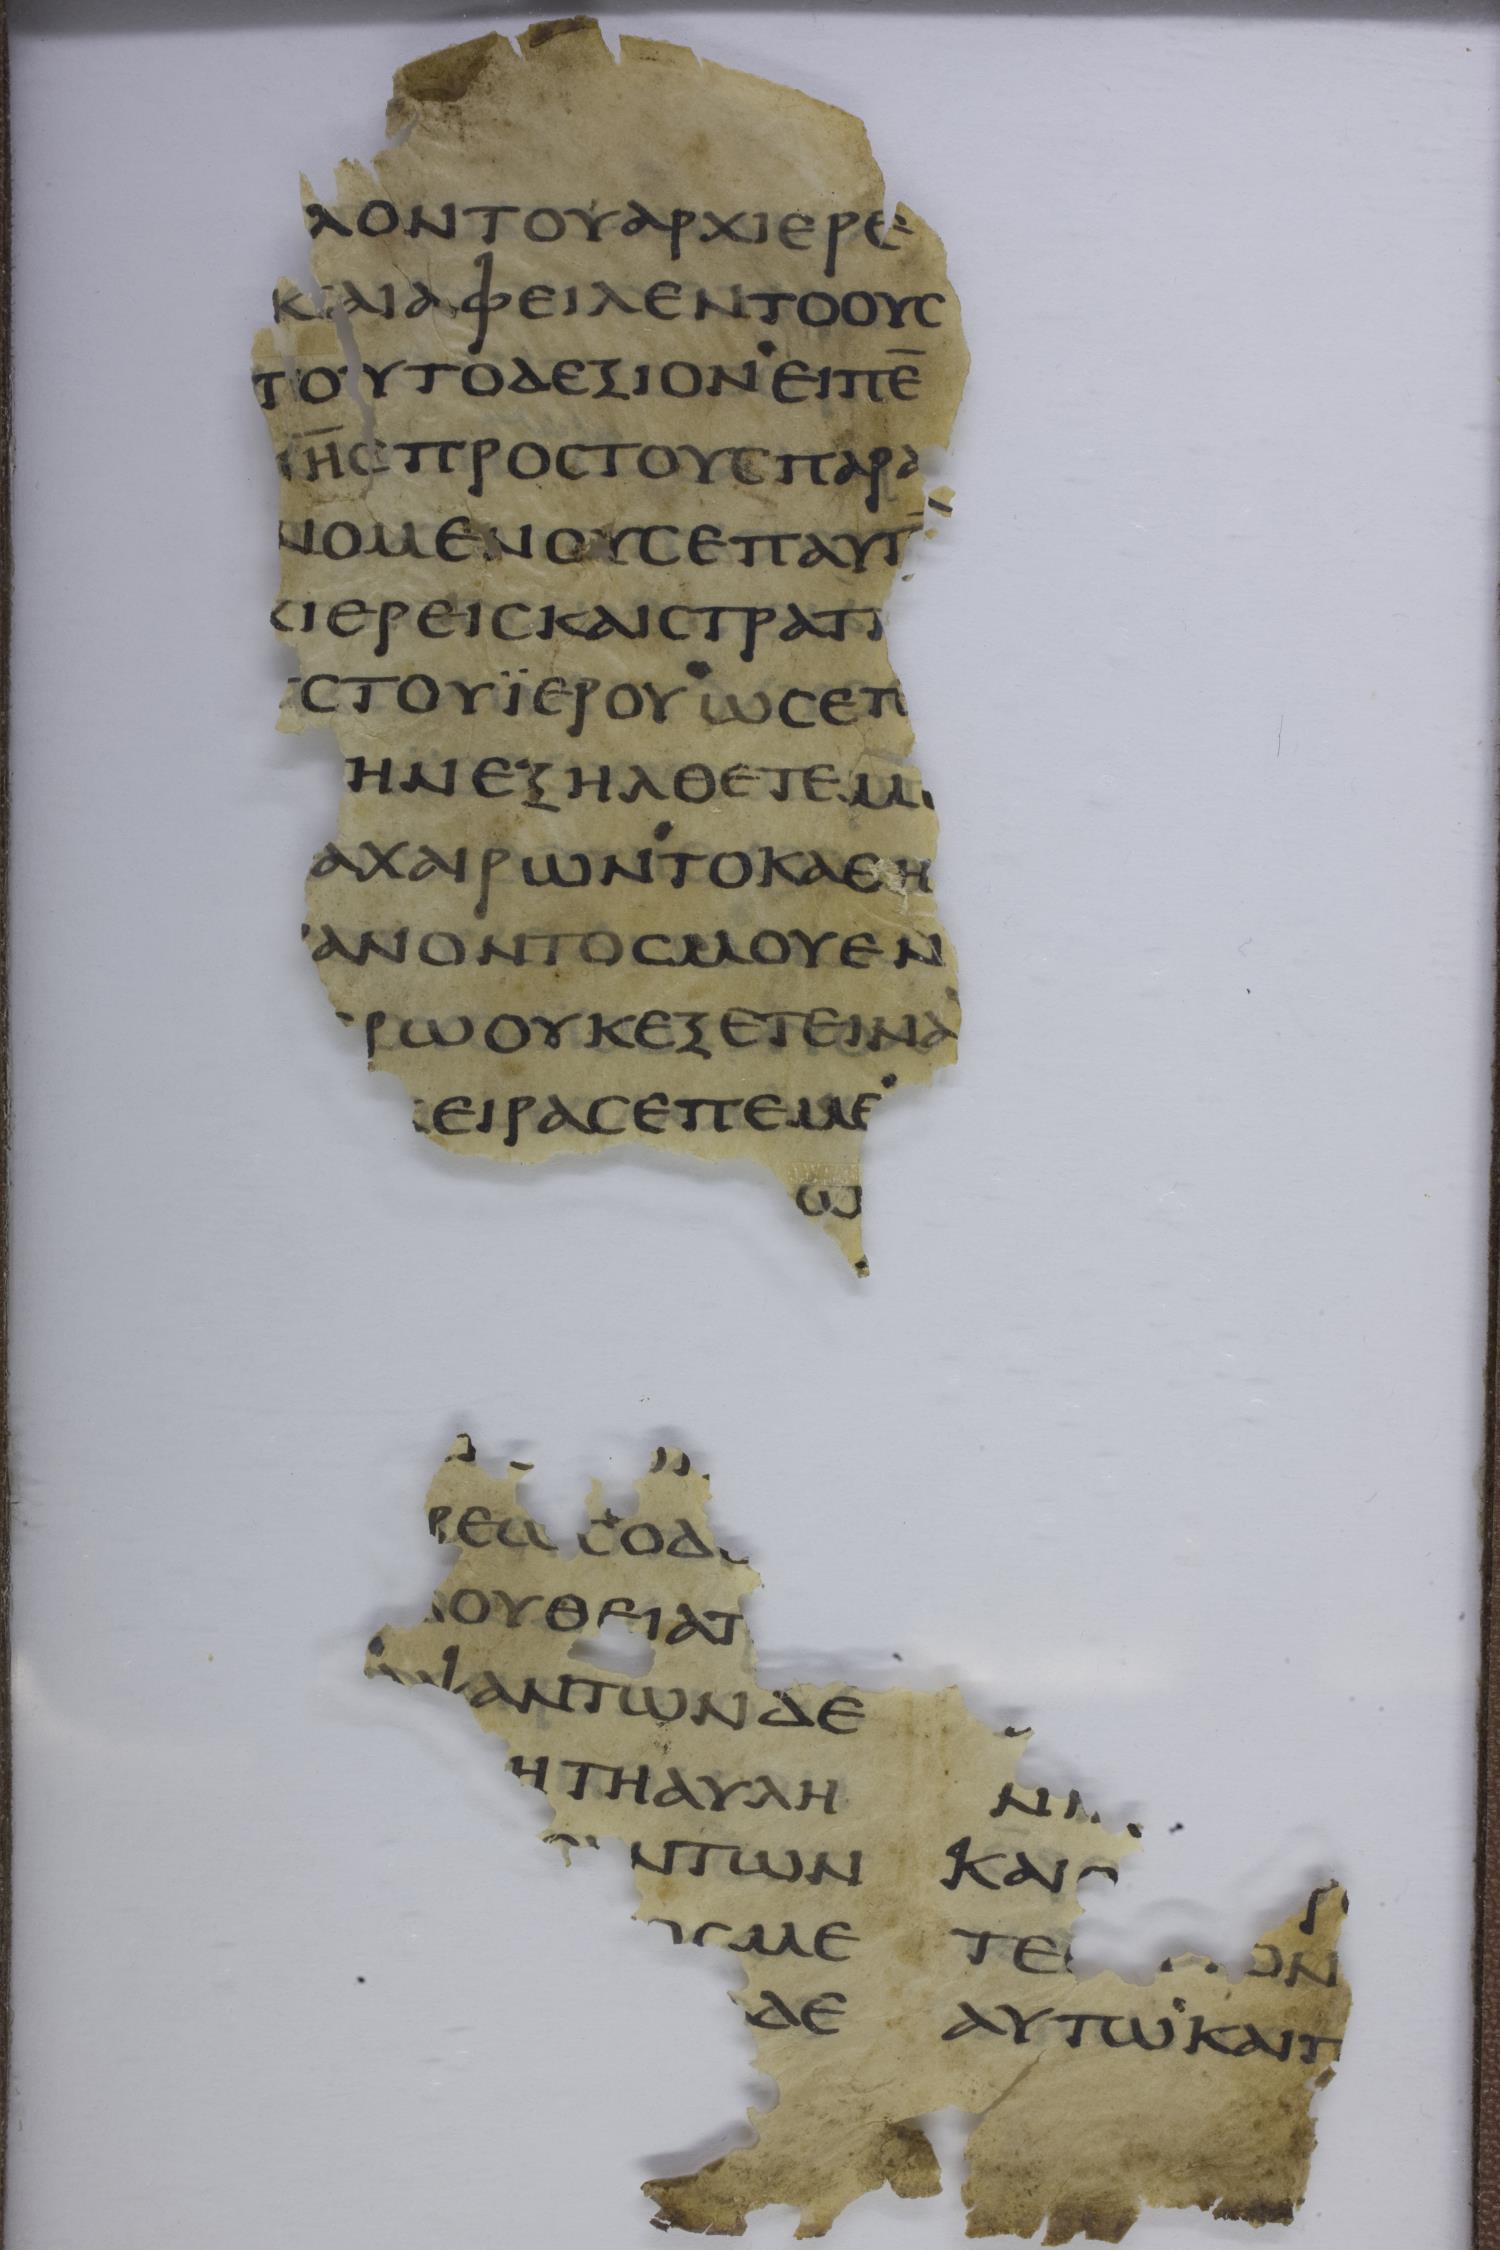 λοντουαρχιερε
καιαφειλεντοους
τουτοδεξιον·ειπε̅
ι̅η̅ςπροςτουςπαρα
νομενουςεπαυτ
χιερειςκαιστρατη
ςτουϊερου·ωςεπ
ηνεξηλθετεμ
αχαιρων·τοκαθη
ανοντοςμουεν
ρωουκεξετεινα
χειραςεπεμε·
ω
ρεως·οδ
λουθειατ
ψαντωνδε
ητηαυλη
ντων
υμε
δε
ν
και
τε ον
αυτω·καιπ